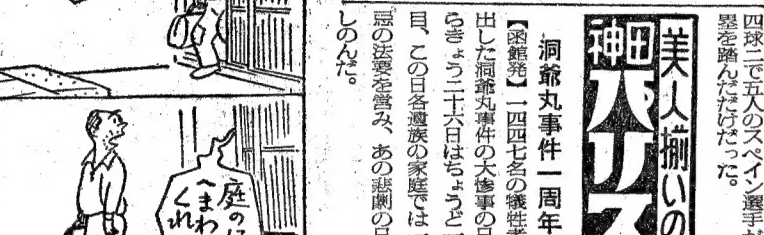 四球二で五人のスペイン選手が
塁を踏んだだけだった。
美人揃いの
神田
パリス
洞爺丸事件一周年
【函館発】一四四七名の犠牲者
出した洞爺丸事件の大惨事の日
らきょう二十六日はちょうど一
目、この日各遺族の家庭では一
忌の法要を営み、あの悲劇の日
しのんだ。
庭の
へまわ
くれ